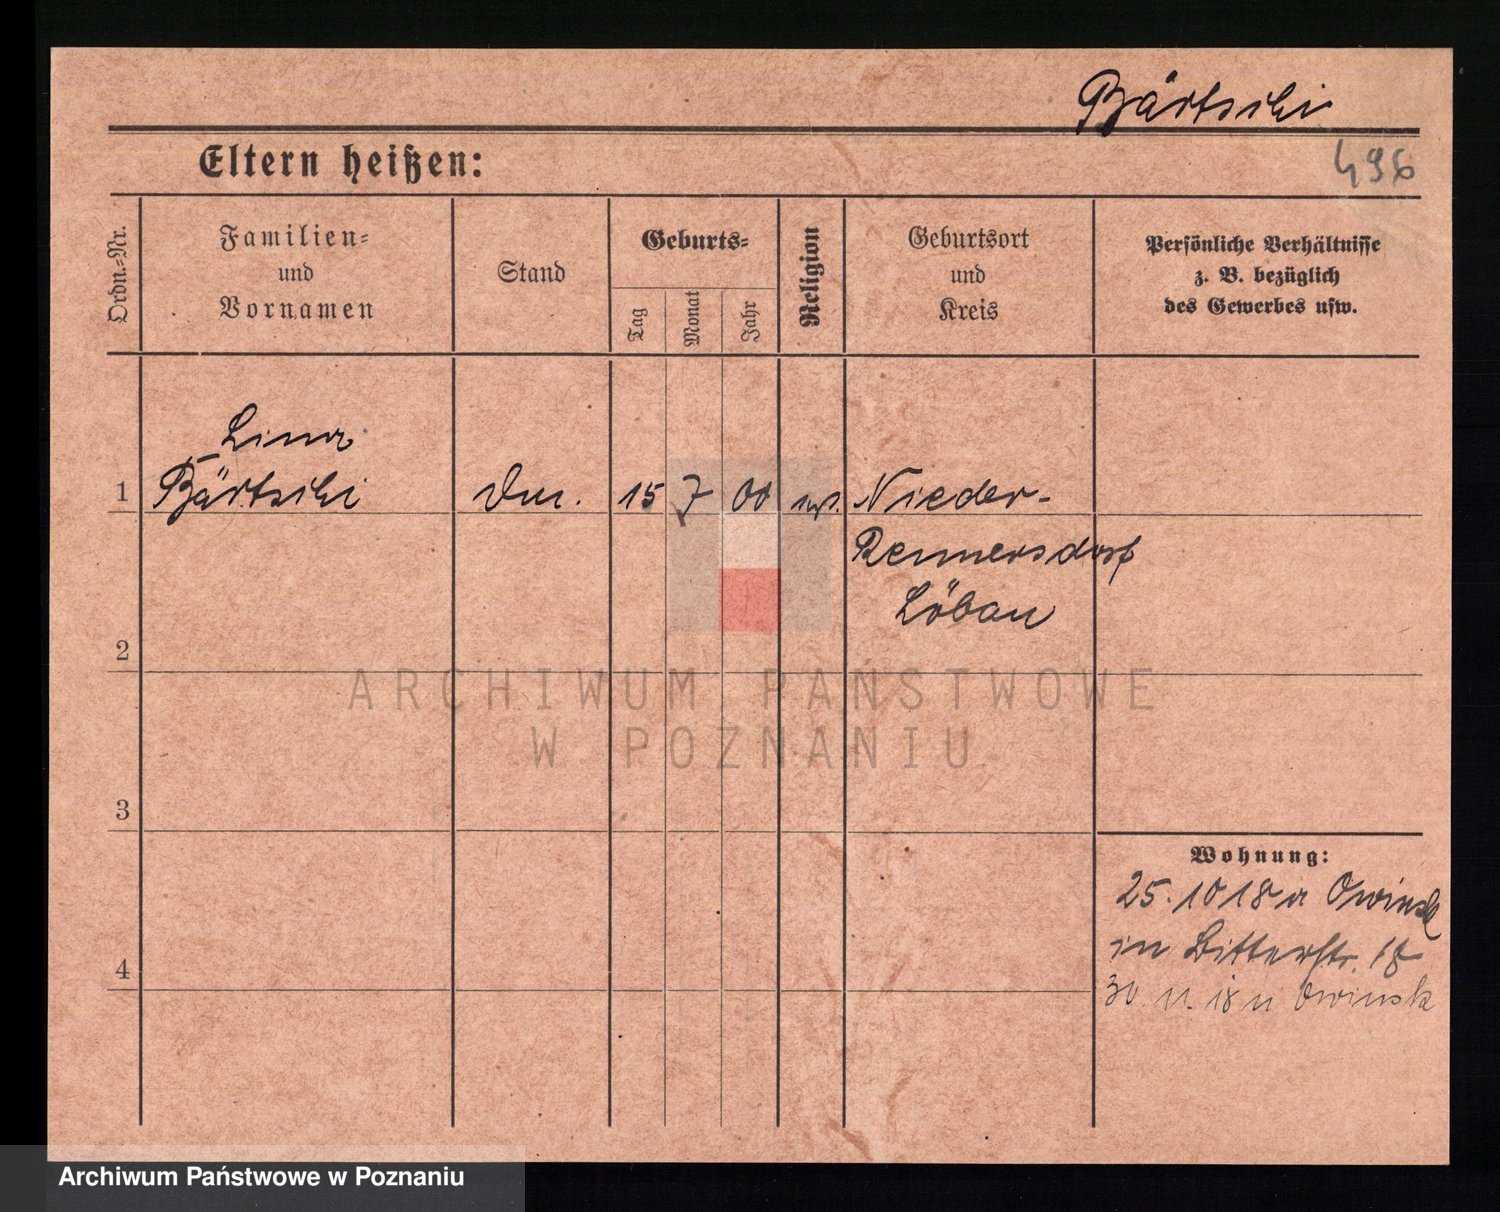 Bärtschi
Eltern heißen:
496
Ordn.-Nr.
Familien-
und
Vornamen
Stand
Geburts-
Tag
Monat
Jahr
Religion
Geburtsort
und
Kreis
Persönliche Verhältnisse
z. B. bezüglich
des Gewerbes usw.
Lina
1 Bärtschi 15 7 00 Nieder-
Rennersdorf
Löbau
2
ARCHIWUM PAŃSTWOWE
W POZNANIU
3
Wohnung:
25. 10 18 a Owinsk
in Bitterstr. 18
4
30. 11. 18 n Owinsk
Archiwum Państwowe w Poznaniu